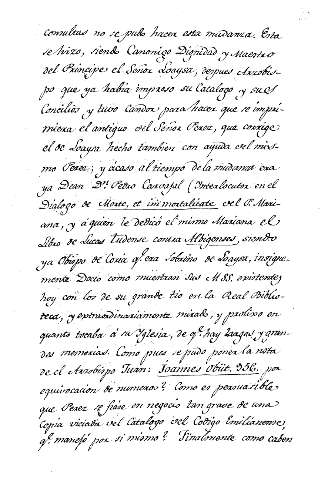 consultas no se pudo hacer esta mudanza. Esta
se hizo, siendo Canonigo Dignidad y Maestro
del Principe el Señor Loaysa, despues Arzobis-
po que ya habia impreso su Catalogo y sus
Concilios y tuvo Candor para hacer que se impri-
miera el antiguo del Señor Perez, que corrige
el de Loaysa hecho tambien con ayuda del mis-
mo Perez; y acaso al tiempo de la mudanza era
ya Dean Dn. Pedro Carvajal (Interlocutor en el
Dialogo de Morte, et inmortalitate del P. Maria-
na, y á quien le dedicó el mismo Mariana el
libro de Lucas tudense contra Albigenses, siendo
ya Obispo de Coria qe. era Sobrino de Loaysa, insigne-
mente Docto como muestran sus MSS. existentes
hoy con los de su grande tio en la Real Biblio-
teca, y extraordinariamente mirado, y prolixo en
quanto tocaba á su Iglesia, de qe. hay largas, y gran-
des memorias. Como pues se pudo poner la nota
de el Arzobispo Juan: Joannes Obiit. 956. por
equivocacion de numeros? Como es persuasible
que Perez se fiase en negocio tan grave de una
Copia viciada del Catalogo del Codigo Emilianense,
qe. manejó por si mismo? Finalmente como caben